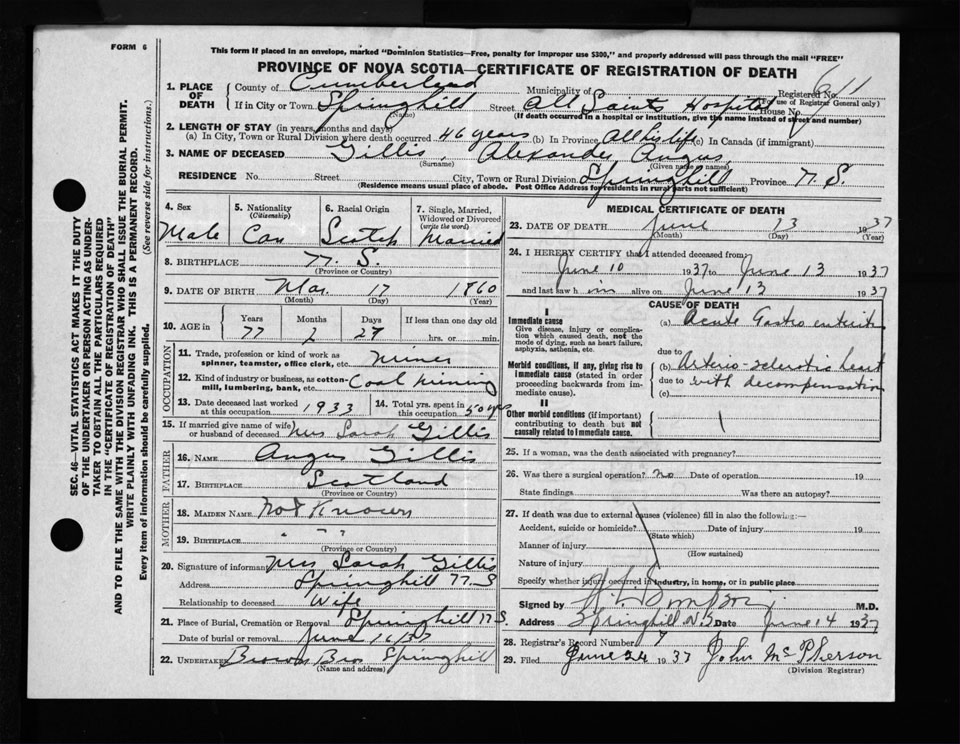 FORM 6
This form if placed in an envelope, marked "Dominion Statistics—Free, penalty for improper use $300," and properly addressed will pass through the mail "FREE"
PROVINCE OF NOVA SCOTIA—CERTIFICATE OF REGISTRATION OF DEATH
SEC. 46—VITAL STATISTICS ACT MAKES IT THE DUTY
OF THE UNDERTAKER OR PERSON ACTING AS UNDER-
TAKER TO OBTAIN ALL THE PARTICULARS REQUIRED
IN THE "CERTIFICATE OF REGISTRATION OF DEATH"
AND TO FILE THE SAME WITH THE DIVISION REGISTRAR WHO SHALL ISSUE THE BURIAL PERMIT.
WRITE PLAINLY WITH UNFADING INK. THIS IS A PERMANENT RECORD.
Every item of information should be carefully supplied. (See reverse side for instructions.)
1. PLACE OF DEATH County of Cumberland Municipality of Registered No. 611
(For use of Registrar General only)
If in City or Town Springhill Street All Saints Hospital House No.
(Name) (If death occurred in a hospital or institution, give the name instead of street and number)
2. LENGTH OF STAY (in years, months and days)
(a) In City, Town or Rural Division where death occurred 46 years (b) In Province All his life (c) In Canada (if immigrant)
3. NAME OF DECEASED Gillis, Alexander Angus
(Surname) (Given name or names)
RESIDENCE No. Street City, Town or Rural Division Springhill Province N. S.
(Residence means usual place of abode. Post Office Address for residents in rural parts not sufficient)
4. Sex 5. Nationality (Citizenship) 6. Racial Origin 7. Single, Married, Widowed or Divorced (write the word)
Male Can Scotch Married
8. BIRTHPLACE N. S.
(Province or Country)
9. DATE OF BIRTH Mar. 17 1860
(Month) (Day) (Year)
10. AGE in Years Months Days If less than one day
77 2 27 hrs. or min.
OCCUPATION
11. Trade, profession or kind of work as spinner, teamster, office clerk, etc. Miner
12. Kind of industry or business, as cotton-mill, lumbering, bank, etc. Coal mining
13. Date deceased last worked at this occupation 1933 14. Total yrs. spent in this occupation 50 yrs
15. If married give name of wife or husband of deceased Mrs Sarah Gillis
FATHER
16. NAME Angus Gillis
17. BIRTHPLACE Scotland
(Province or Country)
MOTHER
18. MAIDEN NAME Not Known
19. BIRTHPLACE " " ?
(Province or Country)
20. Signature of informant Mrs Sarah Gillis
Address Springhill N. S
Relationship to deceased Wife
21. Place of Burial, Cremation or Removal Springhill N S.
Date of burial or removal June 16/37
22. UNDERTAKER Brown Bros Springhill
(Name and address)
MEDICAL CERTIFICATE OF DEATH
23. DATE OF DEATH June 13 1937
(Month) (Day) (Year)
24. I HEREBY CERTIFY that I attended deceased from
June 10 1937 to June 13 1937
and last saw h im alive on June 13 1937
CAUSE OF DEATH
I
Immediate cause (a) Acute Gastro enteritis
Give disease, injury or complication which caused death, not the mode of dying, such as heart failure, asphyxia, asthenia, etc.
due to
Morbid conditions, if any, giving rise to immediate cause (stated in order proceeding backwards from immediate cause). (b) Arterio-sclerotic heart
due to with decompensation
(c)
II
Other morbid conditions (if important) contributing to death but not causally related to immediate cause.
25. If a woman, was the death associated with pregnancy?
26. Was there a surgical operation? no Date of operation 19
State findings Was there an autopsy?
27. If death was due to external causes (violence) fill in also the following:—
Accident, suicide or homicide? Date of injury 19
(State which)
Manner of injury
(How sustained)
Nature of injury
Specify whether injury occurred in industry, in home, or in public place
Signed by M.D.
Address Springhill N.S. Date June 14 1937
28. Registrar's Record Number 7
29. Filed June 24 1937 John McPherson
(Division Registrar)